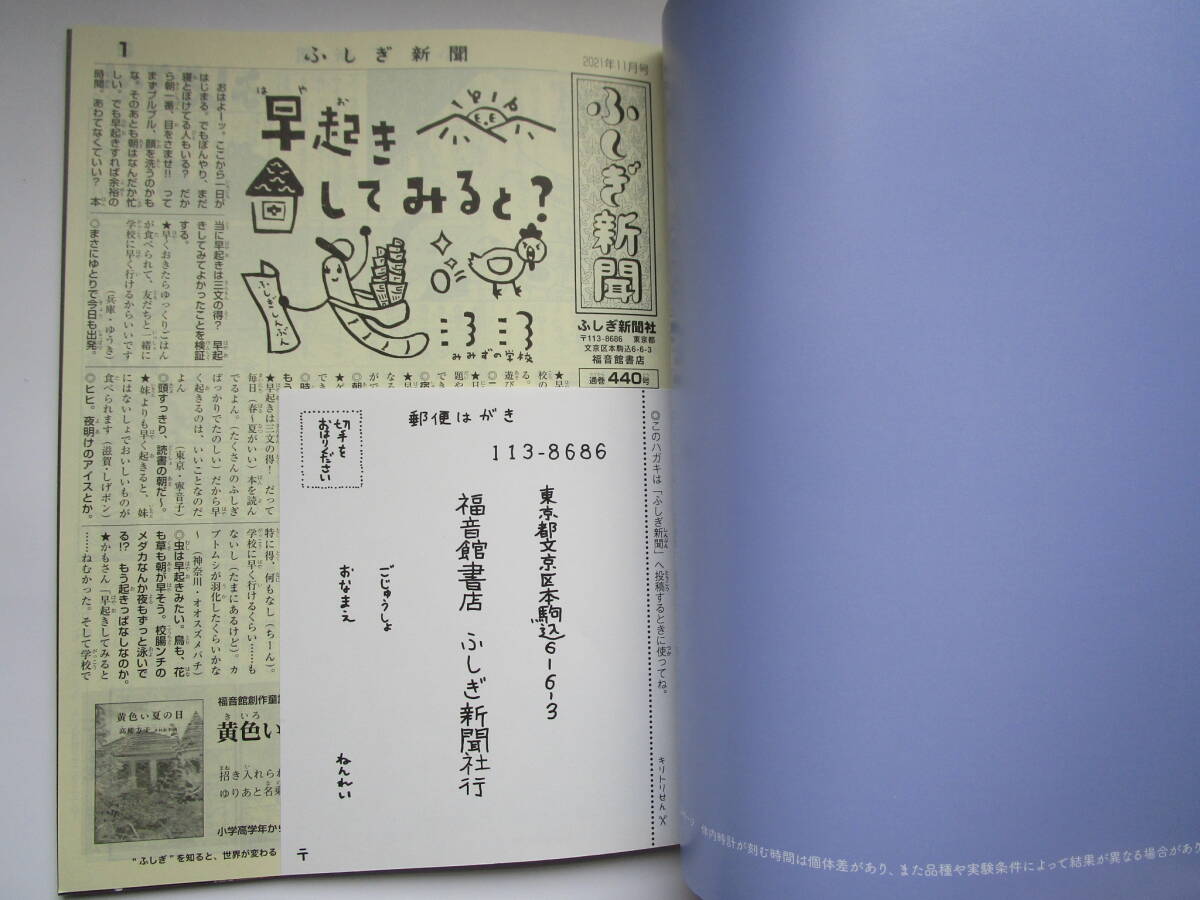 1
ふしぎ新聞
2021年11月号
ふしぎ新聞
ふしぎ新聞社
〒113-8686 東京都
文京区本駒込6-6-3
福音館書店
通巻440号
早起き
はやお
してみると?
ふしぎしんぶん
みみずの学校
おはよーッ。ここから一日が
はじまる。でもぼんやり、まだ
寝とぼけてる人もいる? だか
ら朝一番、目をさませ!! って
まずブルブル、顔を洗うのかも
な。そのあとも朝はなんだか忙
しい。でも早起きすれば余裕の
時間。あわてなくていい? 本
当に早起きは三文の得? 早起
きしてみてよかったことを検証
する。
★早くおきたらゆっくりごはん
が食べられて、友だちと一緒に
学校に早く行けるからいいです
(兵庫・ゆうき)
◎まさにゆとりで今日も出発。
★早起きは三文の得! だって
毎日(春〜夏がいい)本を読ん
でるよん。(たくさんのふしぎ
ばっかりでたのしい)だから早
く起きるのは、いいことなのだ
よん (東京・寧音子)
◎頭すっきり、読書の朝だ〜。
★妹よりも早く起きると、妹
にはないしょでおいしいものが
食べられます(滋賀・しげポン)
◎ヒヒ。夜明けのアイスとか。
特に得、何もなし(ちーん)。
学校に早く行けるくらい……も
ないし(たまにあるけど)。カ
ブトムシが羽化したくらいかな
〜 (神奈川・オオスズメバチ)
◎虫は早起きみたい。鳥も、花
も草も朝が早そう。校腸ンチの
メダカなんか夜もずっと泳いで
る!? もう起きっぱなしなのか。
★かもさん「早起きしてみると
……ねむかった。そして学校で
郵便はがき
切手を
おはりください
113-8686
東京都文京区本駒込6-6-3
福音館書店 ふしぎ新聞社行
ごじゅうしょ
おなまえ
ねんれい
〒
◎このハガキは「ふしぎ新聞」へ投稿するときに使ってね。
キリトリせん
黄色い夏の日
福音館創作童
黄色い
きいろ
招き入れられ
ゆりあと名乗
小学高学年から
"ふしぎ"を知ると、世界が変わる
ページ 体内時計が刻む時間は個体差があり、また品種や実験条件によって結果が異なる場合があ